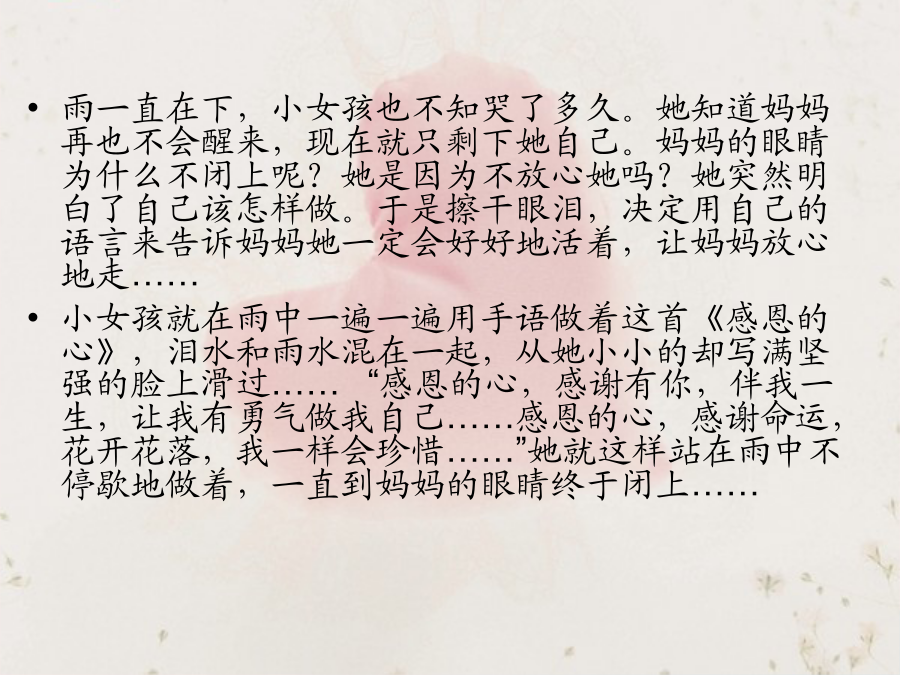 • 雨一直在下，小女孩也不知哭了多久。她知道妈妈
再也不会醒来，现在就只剩下她自己。妈妈的眼睛
为什么不闭上呢？她是因为不放心她吗？她突然明
白了自己该怎样做。于是擦干眼泪，决定用自己的
语言来告诉妈妈她一定会好好地活着，让妈妈放心
地走……
• 小女孩就在雨中一遍一遍用手语做着这首《感恩的
心》，泪水和雨水混在一起，从她小小的却写满坚
强的脸上滑过…… “感恩的心，感谢有你，伴我一
生，让我有勇气做我自己……感恩的心，感谢命运，
花开花落，我一样会珍惜……”她就这样站在雨中不
停歇地做着，一直到妈妈的眼睛终于闭上……